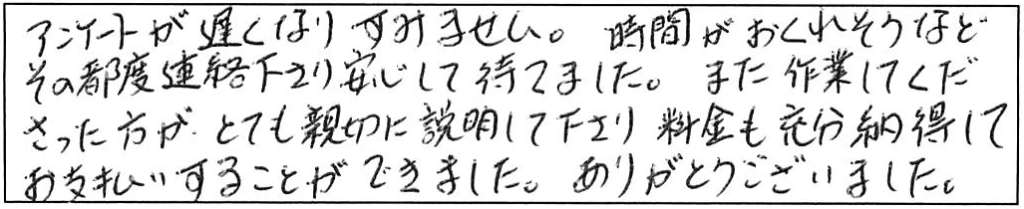 アンケートが遅くなりすみません。時間がおくれそうなど
その都度連絡下さり安心して待てました。また作業してくだ
さった方がとても親切に説明して下さり料金も充分納得して
お支払いすることができました。ありがとうございました。